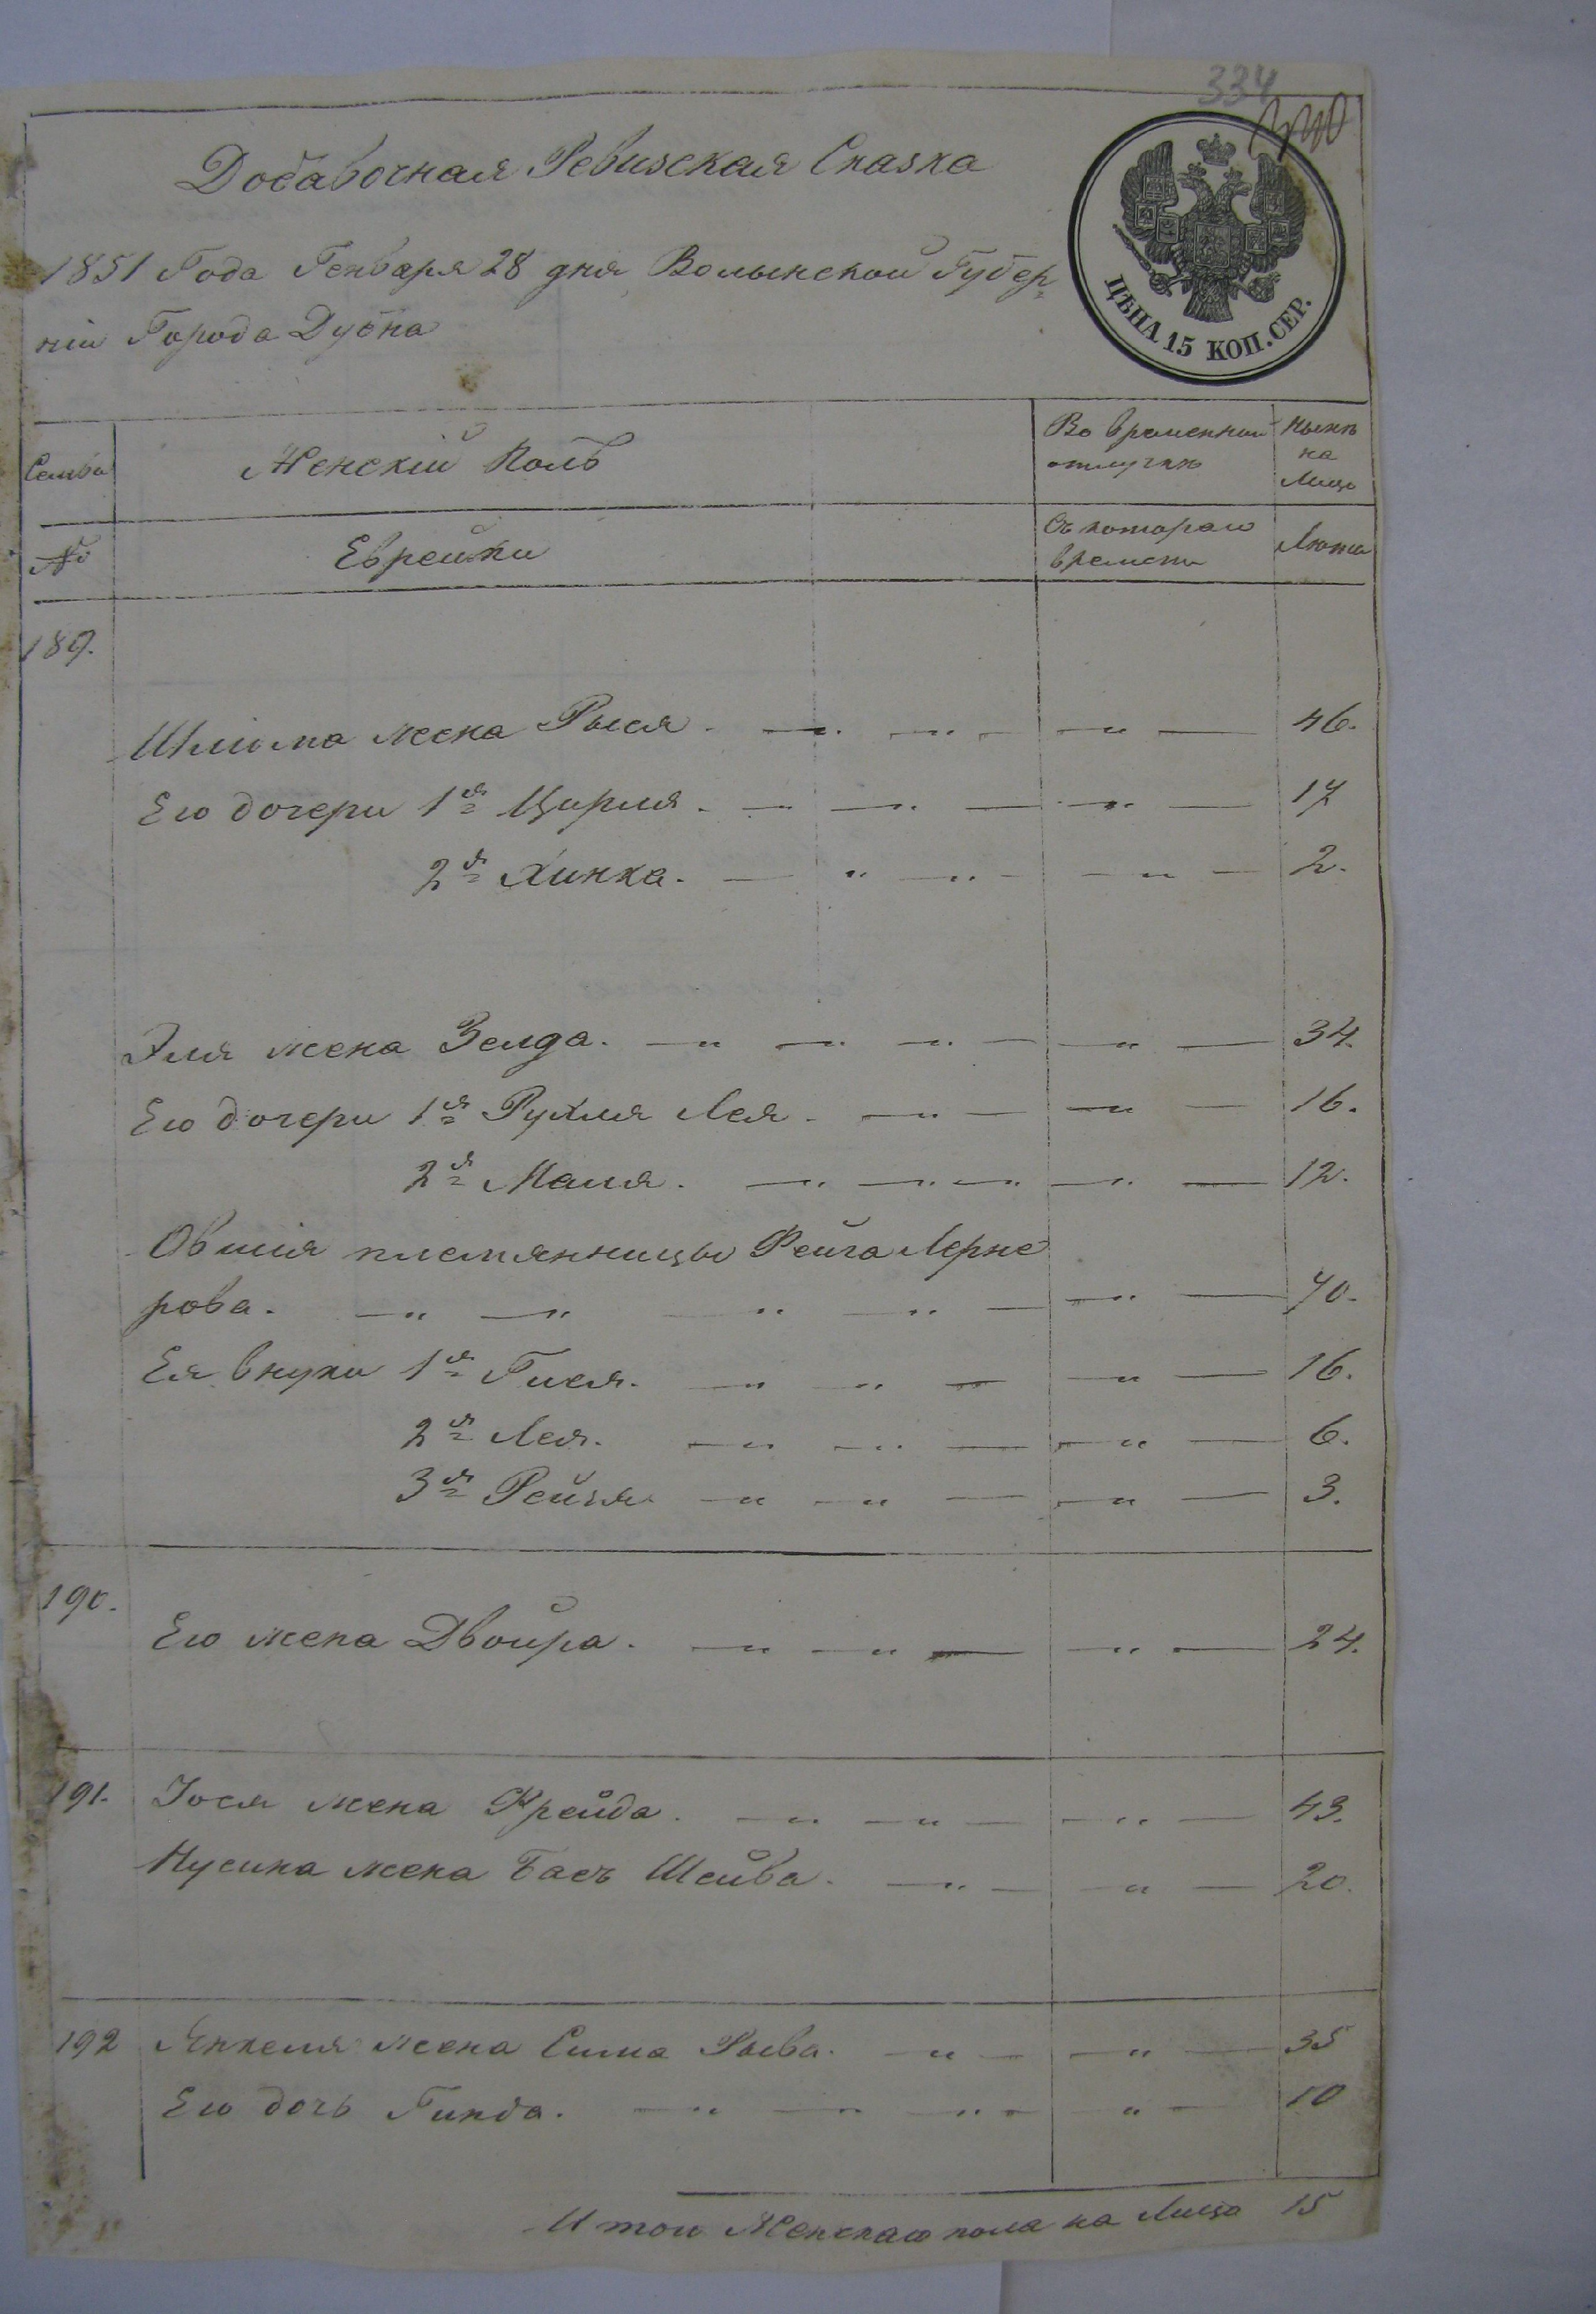 334
Добавочная Ревизская Сказка
1851 Года Генваря 28 дня Волынской Губер
ніи Города Дубна
ЦѢНА 15 КОП. СЕР.
Семьи
Женскій Полъ
Во временной отлучкѣ
Нынѣ на Лицо
№
Еврейки
Съ котораго времени
Лѣта
189.
Шлiома жена Рыся. 46.
Его дочери 1я Цирля. 17
2я Хинка. 2.
Эля жена Зелда. 34.
Его дочери 1я Рухля Лея. 16.
2я Маля. 12.
Овшія племянницы Фейга Лерне
рова. 70.
Ея внуки 1я Гися. 16.
2я Лея. 6.
3я Рейзя 3.
190.
Его жена Двойра. 24.
191. Іося жена Фрейда. 43.
Нусина жена Басъ Шейва. 20.
192 Янкеля жена Сима Рыва. 35
Его дочь Гинда. 10
Итого Женскаго пола на Лицо 15